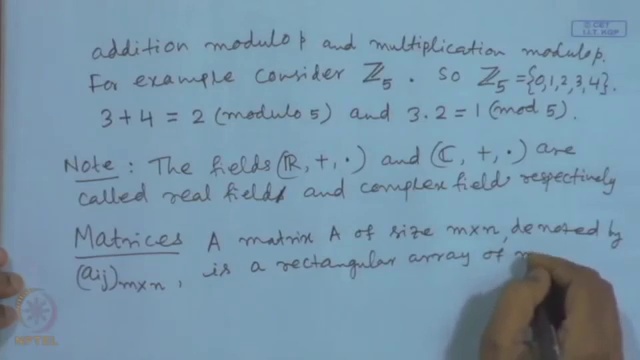 © CET
I.I.T. KGP
addition modulo p and multiplication modulo p.
For example consider ℤ₅ . So ℤ₅ = {0,1,2,3,4}.
3 + 4 = 2 (modulo 5) and 3 . 2 = 1 (mod 5).
Note : The fields (ℝ, +, ·) and (ℂ, +, ·) are
called real field and complex field respectively
Matrices A matrix A of size m×n, denoted by
(aij)m×n , is a rectangular array of
NPTEL